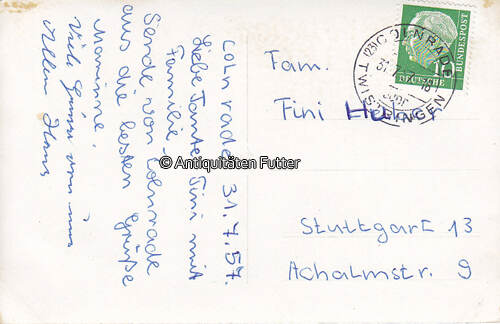 Colnrade 31.7.57.
Liebe Tante Fini mit
Familie.
Sende von Colnrade
aus die besten Grüße
Marinne.
Viele Grüße von uns
allen Hans
Fam.
Fini Huber
Stuttgart 13
Achalmstr. 9
(23) COLNRADE
TWISTRINGEN
DEUTSCHE
BUNDESPOST
© Antiquitäten Futter